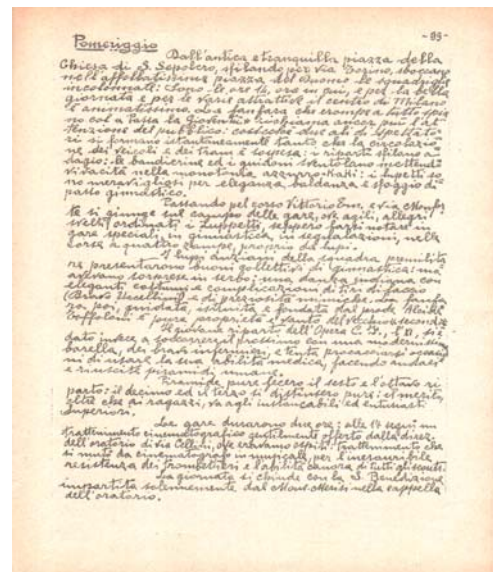 - 93 -
Pomeriggio
Dall'antica e tranquilla piazza della
Chiesa di S. Sepolcro, sfilando per via Torino, sboccano
nell'affollatissima piazza del Duomo le squadriglie
incolonnate: Sono le ore 14, ora in cui, e per la bella
giornata e per le varie attrattive il centro di Milano
è animatissimo. La fanfara che erompe a tutto spia
no col "Passa la Gioventù" richiama ancor più l'at-
tenzione del pubblico: cosicché due ali di spettato
ri si formano istantaneamente tanto che la circolazio
ne dei veicoli e dei tram è sospesa: i riparti sfilano a-
dagio: le bandierine ed i guidoni sventolano mettendo
vivacità nella monotonia azzurro-kaki: i lupetti so
no meravigliosi per eleganza, baldanza e sfoggio di
passo ginnastico.
Passando pel corso Vittorio Em. e via Monfor
te si giunge sul campo delle gare, ove agili, allegri
svelti, ordinati i lupetti, seppero farsi notare in
gare speciali, in ginnastica, in segnalazioni, nella
corsa a quattro zampe, proprio da lupi.
I lupi anziani della squadra premilita
re presentarono buoni collettivi di ginnastica: ma
avevano sorprese in serbo: una danza indiana con
eleganti costumi e complicazioni di tiri di laccio
(Bravo Uccellini) e di preziosità mimiche. La fanfa
ra poi, guidata, istruita e fondata dal prode
Toffoloni è pure proprietà e vanto del vecchio secondo
Il giovane riparto dell'Opera C. F., l' 11, si è
dato invece a soccorrere il prossimo con una modernissima
barella, dei bravi infermieri, e tenta procacciarsi occasio
ni di usare la sua abilità medica, facendo audaci
e riuscite piramidi umane.
Piramide, pure fecero il sesto e l'ottavo ri
parto: il decimo ed il terzo si distinsero pure: il merito,
oltre che ai ragazzi, va agli instancabili ed entusiasti
Superiori.
Le gare durarono due ore: alle 17 seguì un
trattenimento cinematografico gentilmente offerto dalla direz.
dell'oratorio di via che eravamo ospiti: trattenimento che
si mutò da cinematografico in musicale, per l'inesauribile
resistenza dei trombettieri e l'abilità canora di tutti gli scouts.
La giornata si chiude con la S. Benedizione
impartita solennemente dal Mons. nella cappella
dell'oratorio.